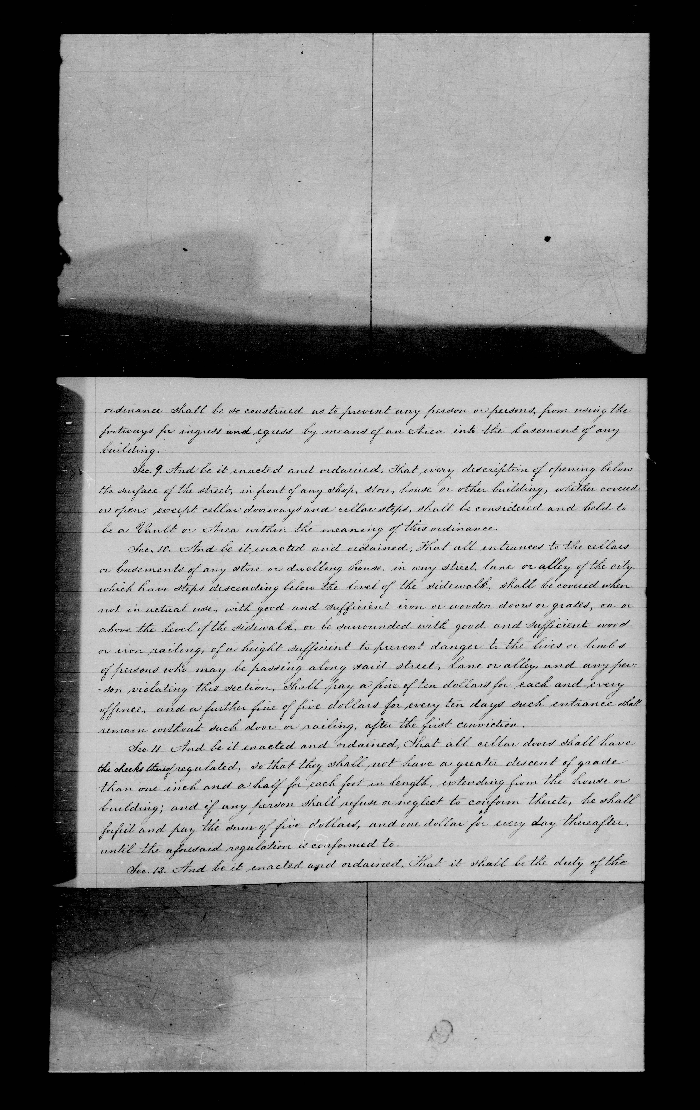 ordinance shall be so construed as to prevent any person or persons, from using the
footways for ingress and egress by means of an Area into the basement of any
building.
Sec. 9. And be it enacted and ordained, That every description of opening below
the surface of the street, in front of any shop, store, house or other building, whether covered
or open, except cellar doorways and cellar steps, shall be considered and held to
be a Vault or Area within the meaning of this ordinance.
Sec. 10. And be it enacted and ordained, That all entrances to the cellars
or basements of any store or dwelling house, in any street, lane or alley of the city
which have steps descending below the level of the sidewalk, shall be covered when
not in actual use, with good and sufficient iron or wooden doors or grates, on or
above the level of the sidewalk, or be surrounded with good and sufficient wood
or iron railing, of a height sufficient to prevent danger to the lives or limbs
of persons who may be passing along said street, lane or alley, and any per-
-son violating this section, shall pay a fine of ten dollars for each and every
offence, and a further fine of five dollars for every ten days such entrance shall
remain without such door or railing, after the first conviction.
Sec. 11. And be it enacted and ordained, That all cellar doors shall have
the cheeks thereof regulated, so that they shall not have a greater descent of grade
than one inch and a half for each foot in length, extending from the house or
building; and if any person shall refuse or neglect to conform thereto, he shall
forfeit and pay the sum of five dollars, and one dollar for every day thereafter,
until the aforesaid regulation is conformed to.
Sec. 12. And be it enacted and ordained, That it shall be the duty of the